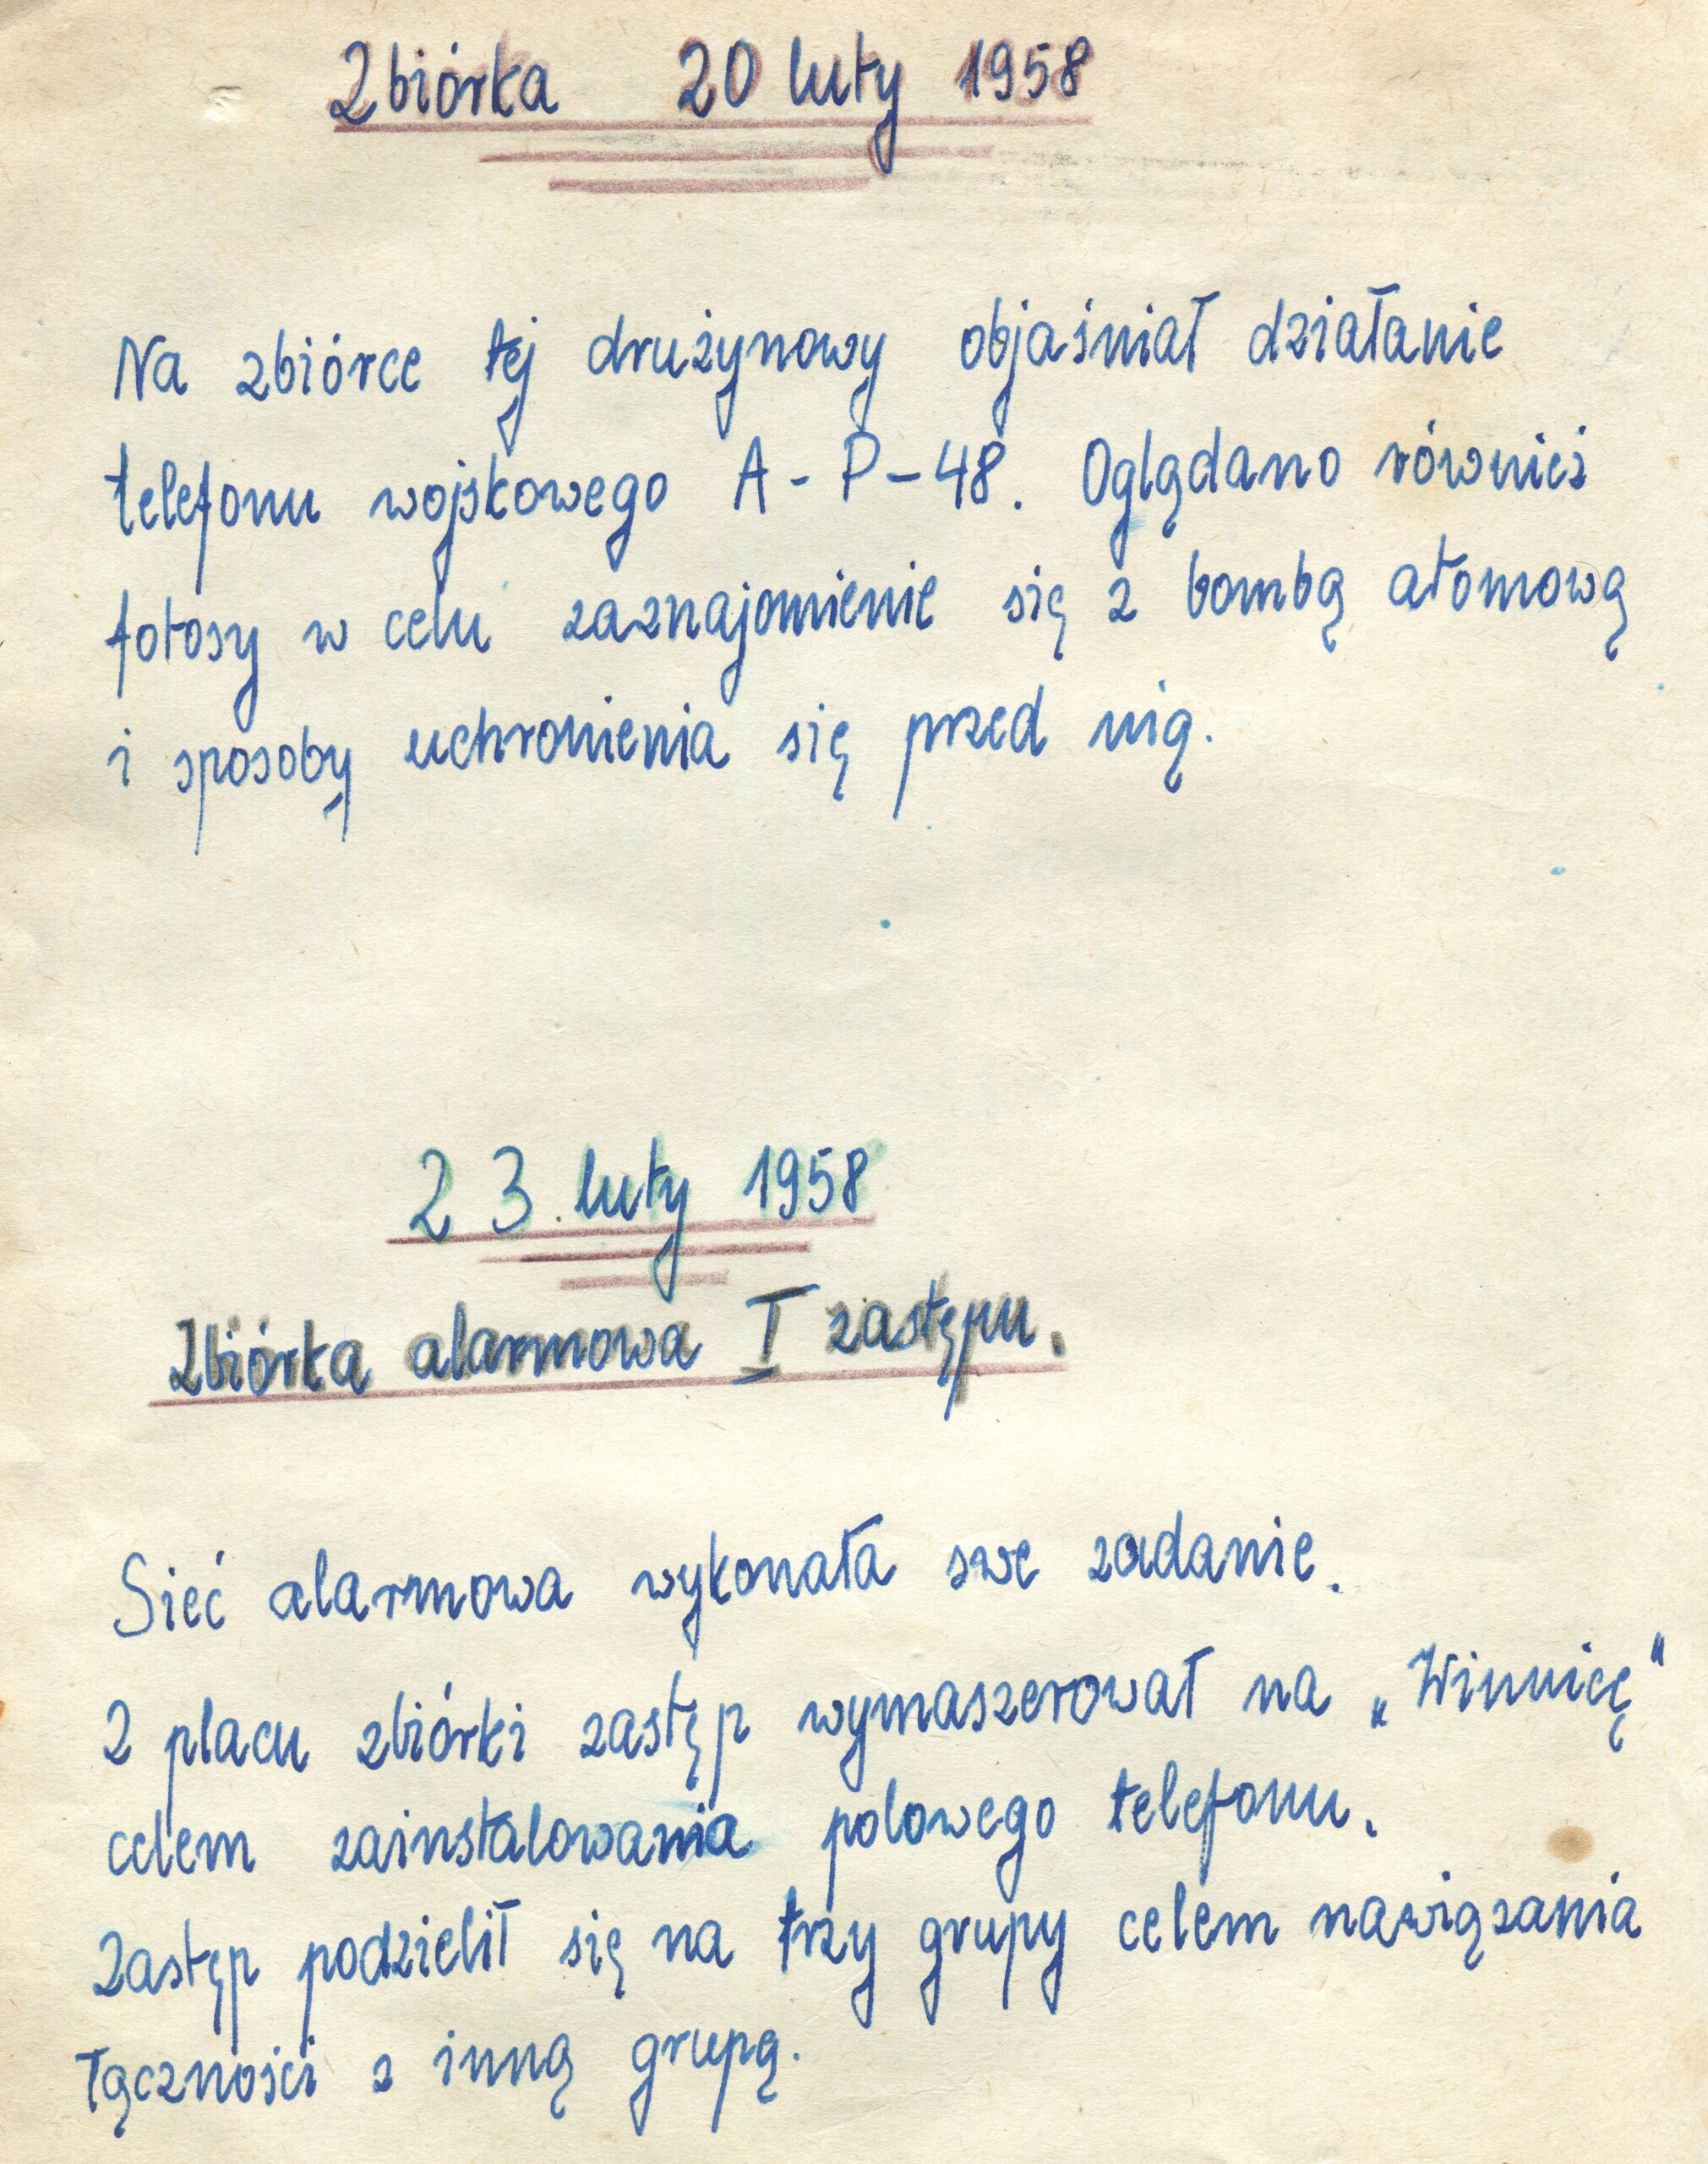 Zbiórka 20 luty 1958
Na zbiórce tej drużynowy objaśniał działanie
telefonu wojskowego A - P - 48. Oglądano również
fotosy w celu zaznajomienie się z bombą atomową
i sposoby uchronienia się przed nią.
23. luty 1958
Zbiórka alarmowa I zastępu.
Sieć alarmowa wykonała swe zadanie.
Z placu zbiórki zastęp wymaszerował na „Winnicę"
celem zainstalowania polowego telefonu.
Zastęp podzielił się na trzy grupy celem nawiązania
łączności z inną grupą.